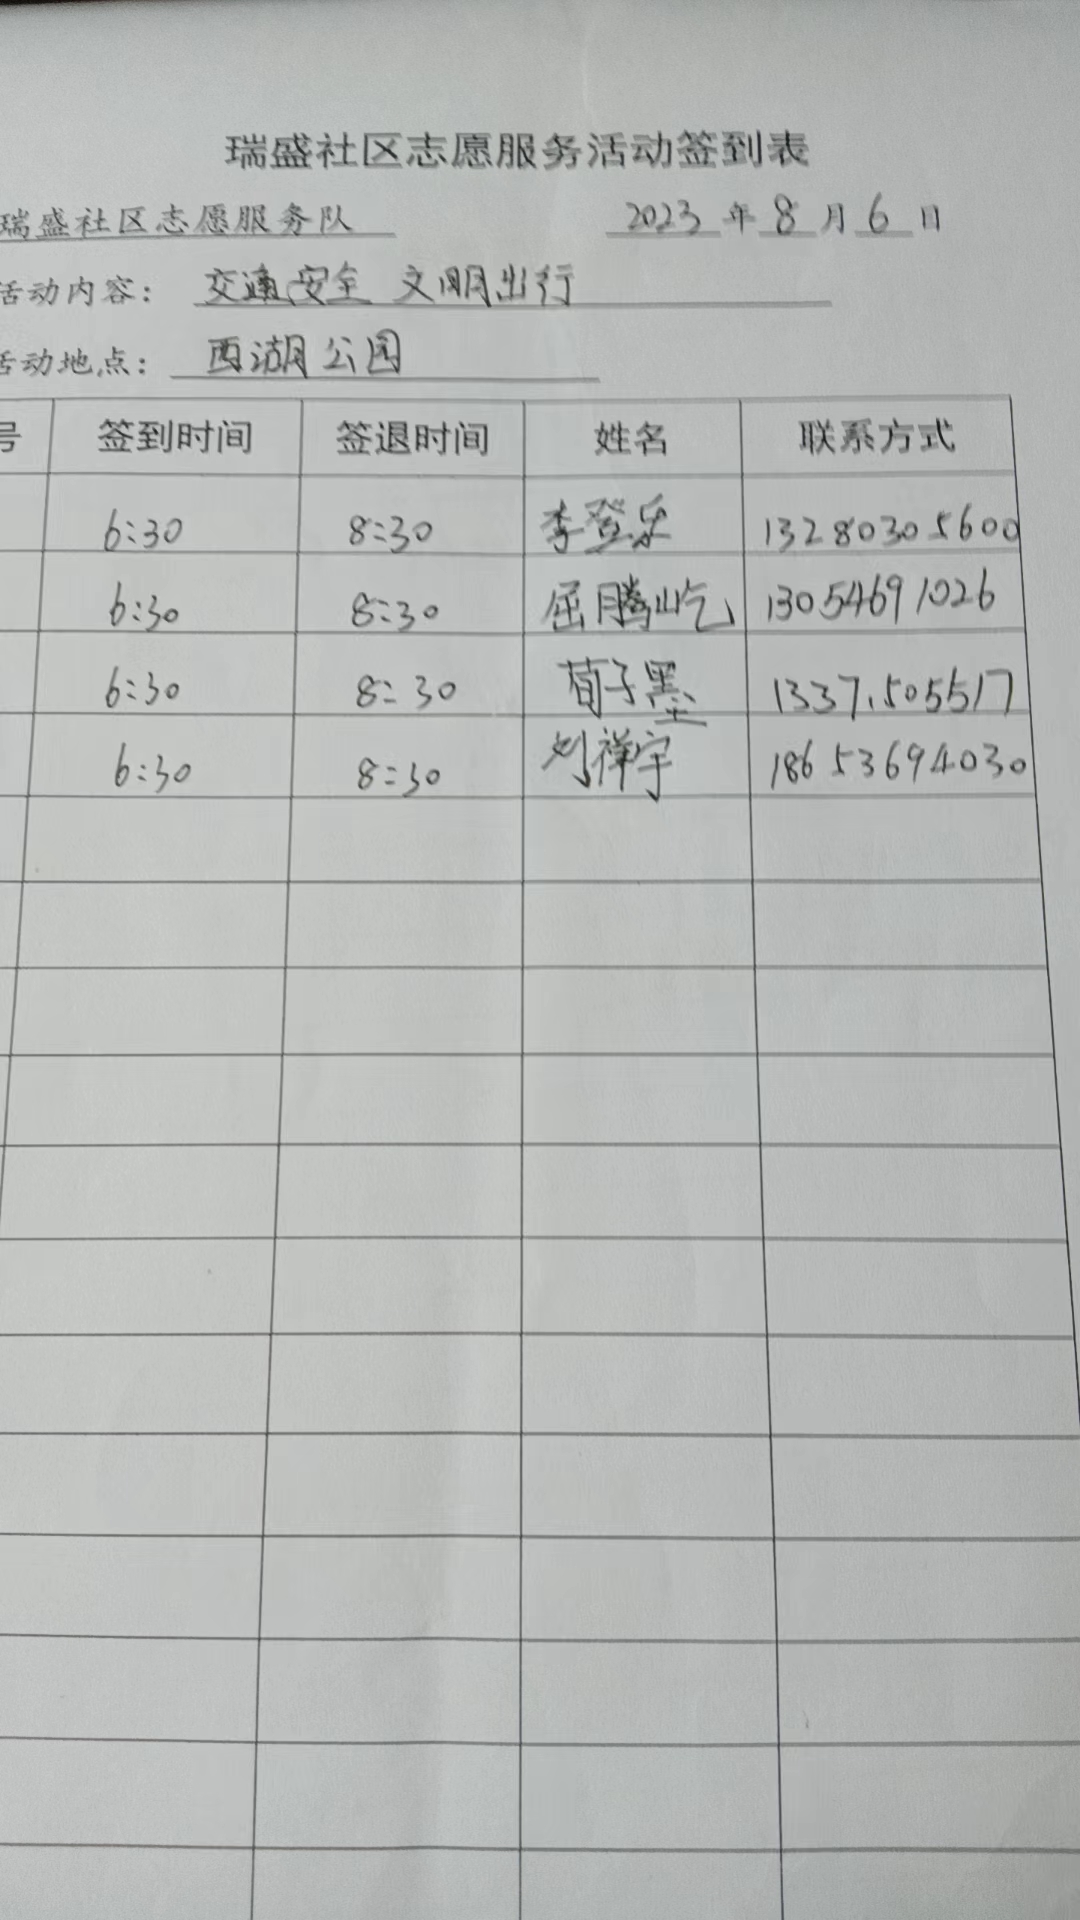 瑞盛社区志愿服务活动签到表
瑞盛社区志愿服务队 2023 年 8 月 6 日
活动内容： 交通安全 文明出行
活动地点： 西湖公园
号 签到时间 签退时间 姓名 联系方式
6:30 8:30 李登乐 13280305600
6:30 8:30 屈腾屹 13054691026
6:30 8:30 荀子墨
6:30 8:30 刘祥宇 18653694030